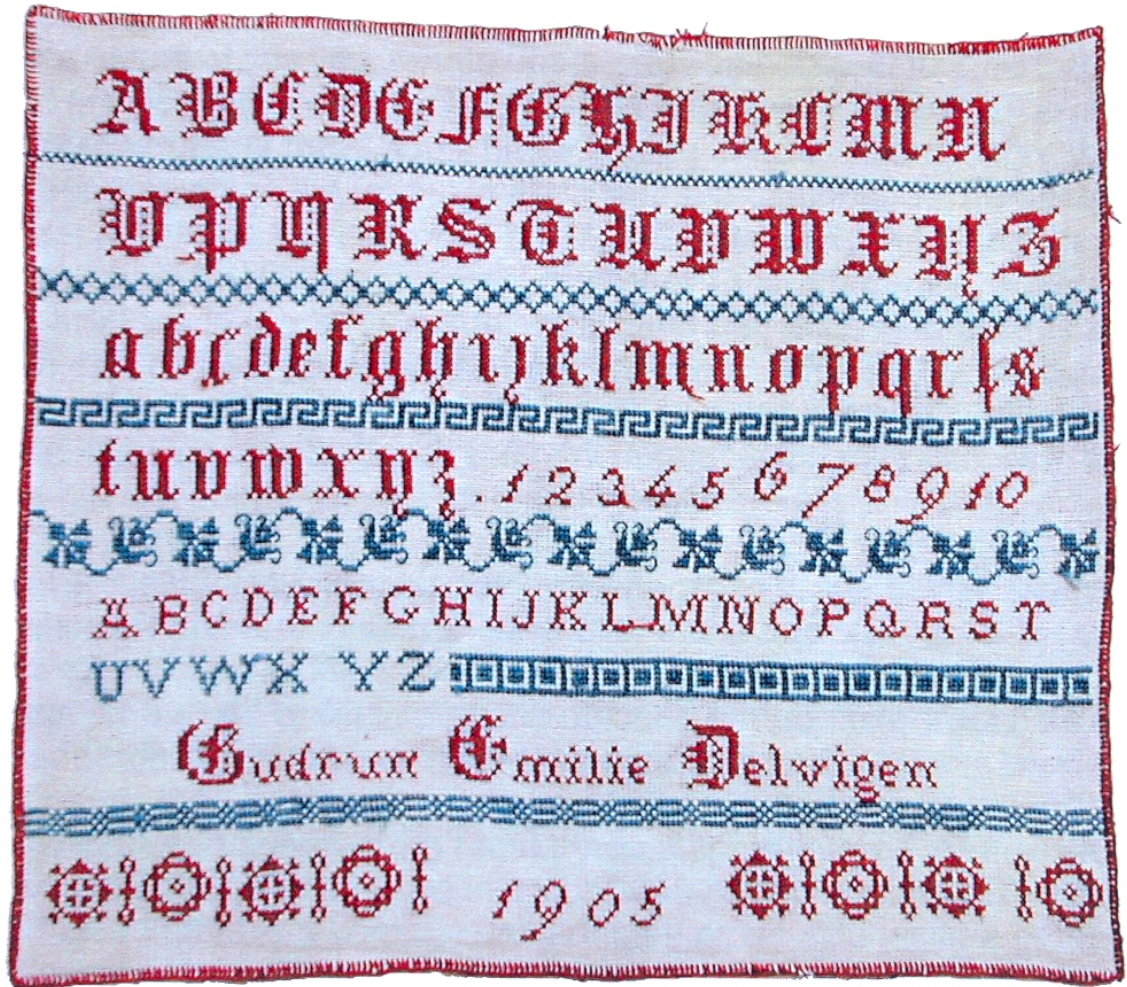 A B C D E F G H I K L M N
O P Q R S T U V W X Y Z
a b c d e f g h i j k l m n o p q r ſ s
t u v w x y z . 1 2 3 4 5 6 7 8 9 10
A B C D E F G H I J K L M N O P Q R S T
U V W X Y Z
Gudrun Emilie Delvigen
1905